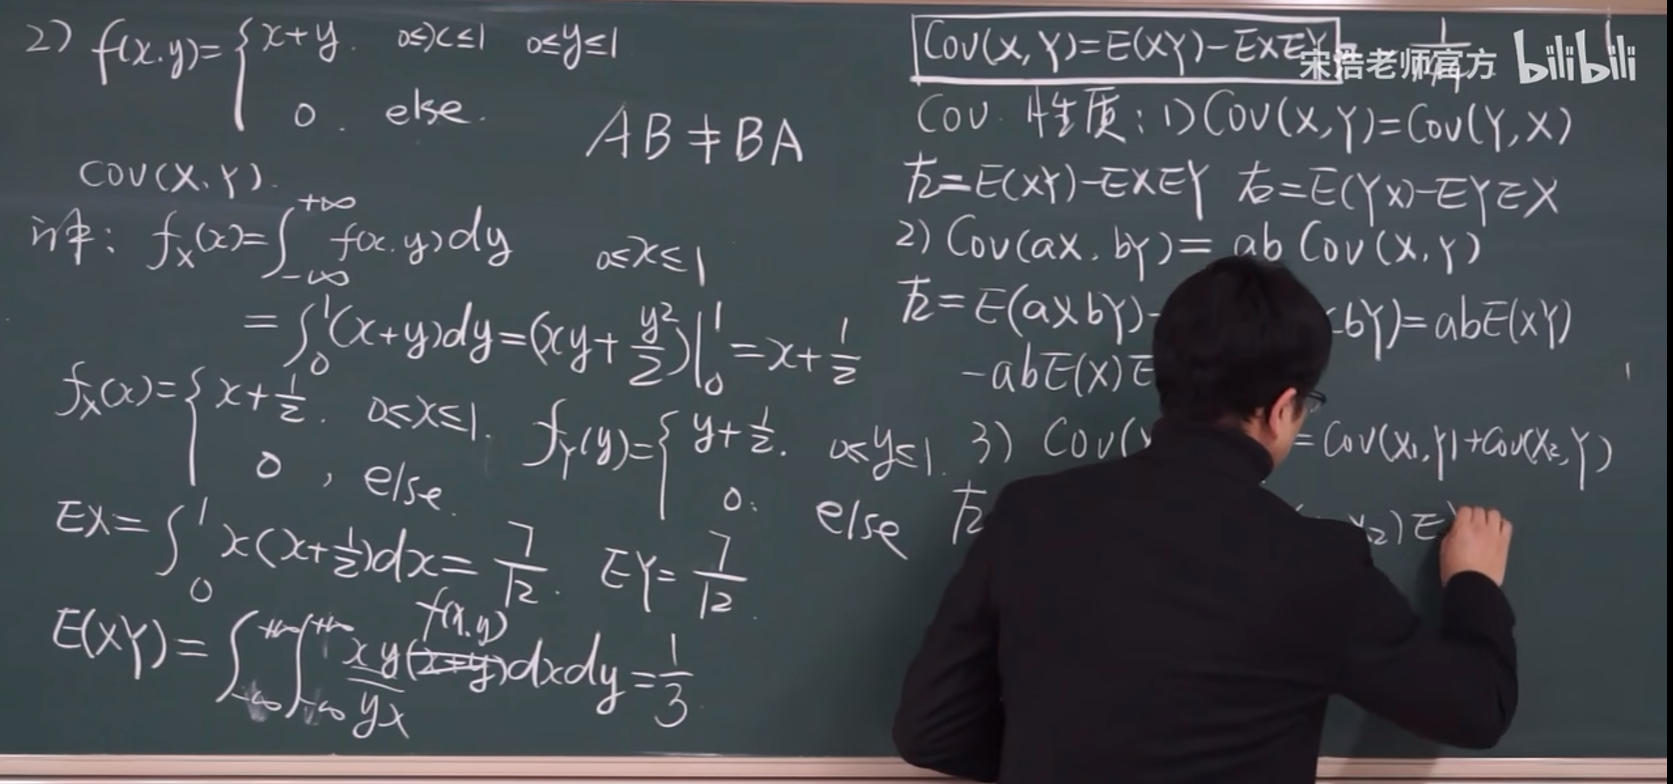 2) f(x,y)={ x+y. 0≤x≤1 0≤y≤1
0. else.
AB≠BA
COV(X,Y).
f_X(x)=∫_{-∞}^{+∞} f(x,y)dy 0≤x≤1
=∫_0^1(x+y)dy=(xy+y²/2)|_0^1=x+1/2
f_X(x)={ x+1/2. 0≤x≤1. f_Y(y)={ y+1/2. 0≤y≤1.
0, else. 0. else
EX=∫_0^1 x(x+1/2)dx=7/12. EY=7/12.
E(XY)=∫_{-∞}^{+∞}∫_{-∞}^{+∞} xy f(x,y) dxdy=1/3
yx
Cov(X,Y)=E(XY)-EXEY
宋浩老师官方 bilibili
Cov 性质:1)Cov(X,Y)=Cov(Y,X)
左=E(XY)-EXEY 右=E(YX)-EYEX
2) Cov(aX,bY)=ab Cov(X,Y)
左=E(aXbY)- bY)=abE(XY)
-abE(X)E
3) Cov( =Cov(X₁,Y)+Cov(X₂,Y)
左 X₂)E